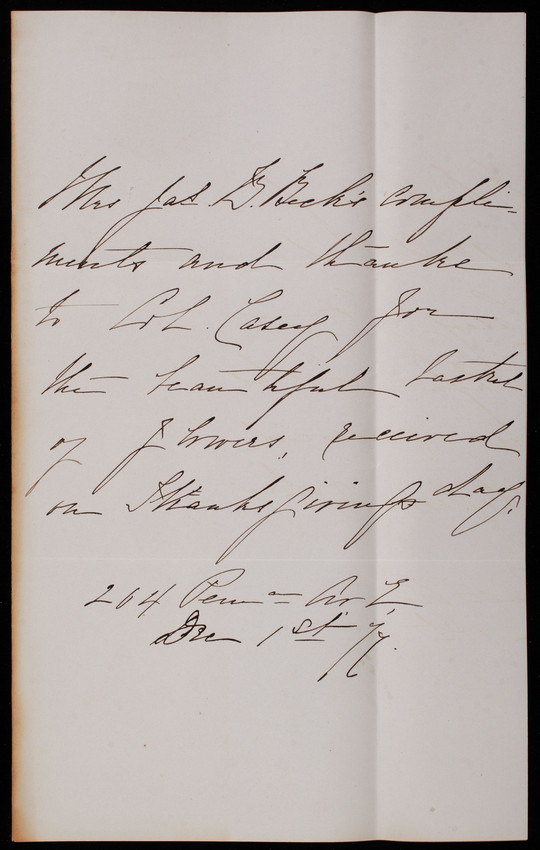 Mrs Jas. B. Beck's compli-
ments and thanks
to Col. Casey for
the beautiful basket
of flowers, received
on Thanksgiving day.
204 Penn a Av E,
Dec 1st 77.